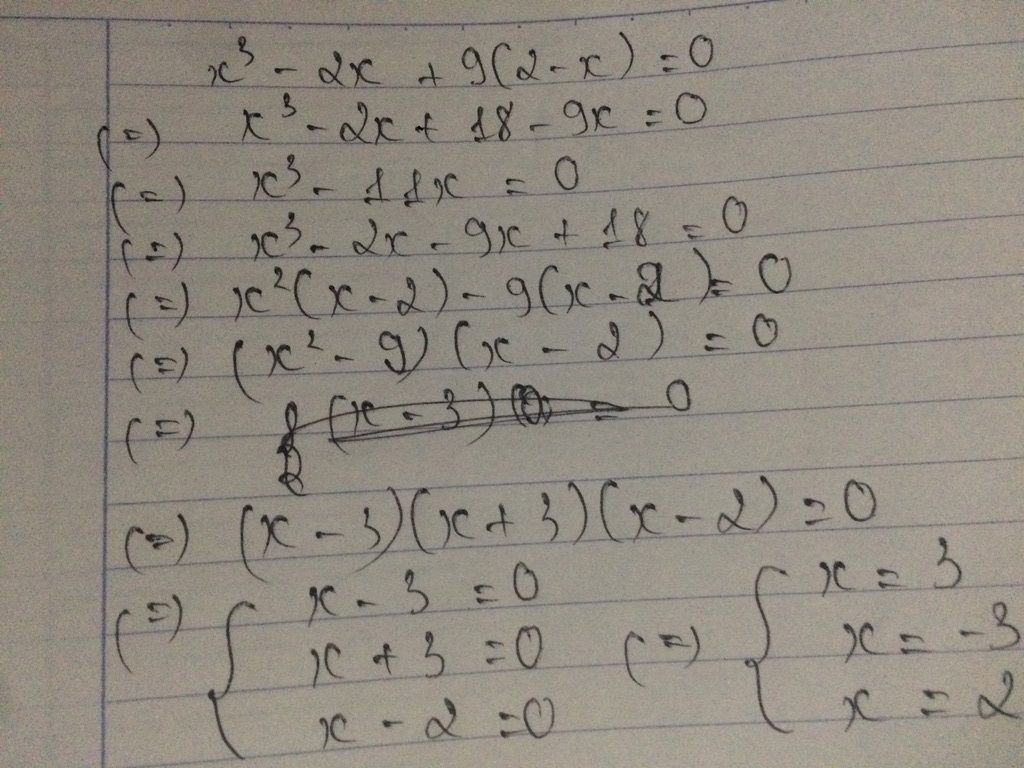 x³ - 2x + 9(2-x) = 0
(=) x³ - 2x + 18 - 9x = 0
(=) x³ - 11x = 0
(=) x³ - 2x - 9x + 18 = 0
(=) x²(x-2) - 9(x-2) = 0
(=) (x² - 9)(x - 2) = 0
(=) (x - 3) = 0
(=) (x - 3)(x + 3)(x - 2) = 0
(=) { x - 3 = 0 (=) { x = 3
x + 3 = 0 x = -3
x - 2 = 0 x = 2